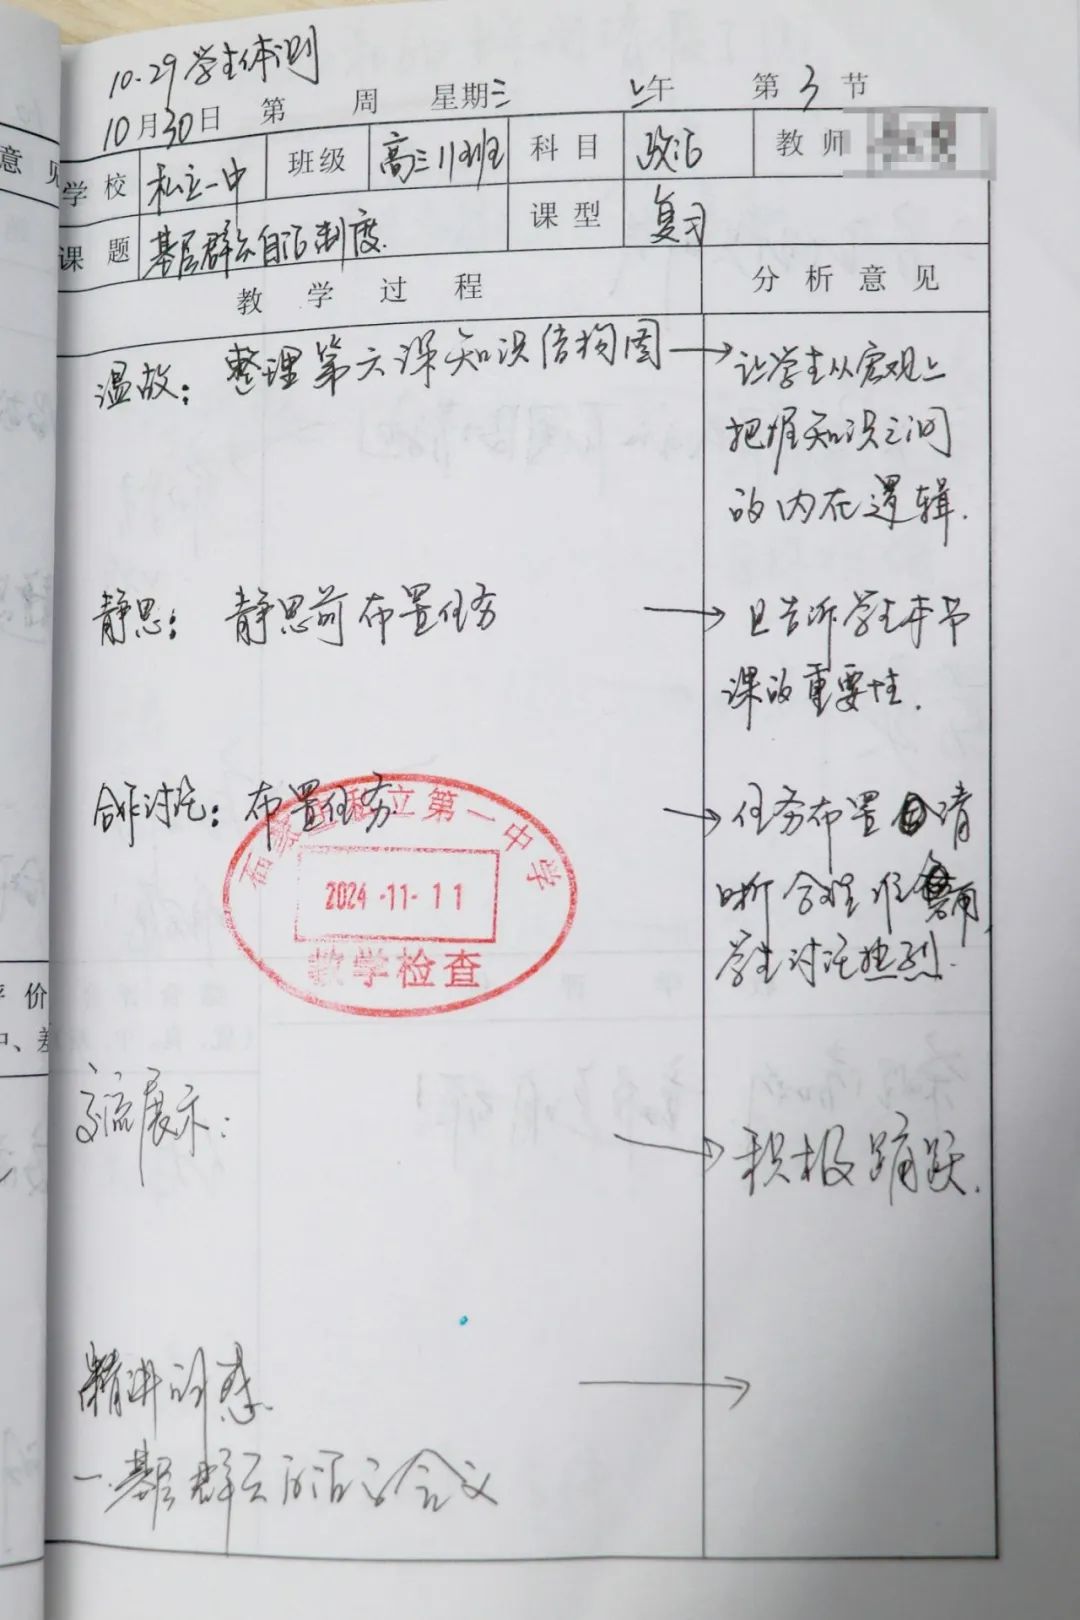 10.29学生体测
10月30日 第 周 星期三 上午 第3节
学校 私立一中 班级 高三11班 科目 政治 教师
课题 基层群众自治制度. 课型 复习
教 学 过 程 分 析 意 见
温故: 整理第六课知识结构图 → 让学生从宏观上
把握知识之间
的内在逻辑.
静思: 静思前布置任务 → 且告诉学生本节
课的重要性.
合作讨论: 布置任务 → 任务布置 清
晰
学生讨论热烈.
私立第一中学
2024-11-11
教学检查
交流展示: → 积极踊跃.
精讲 惑 →
一.基层群众 治 含义
意 见
评 价
中、差